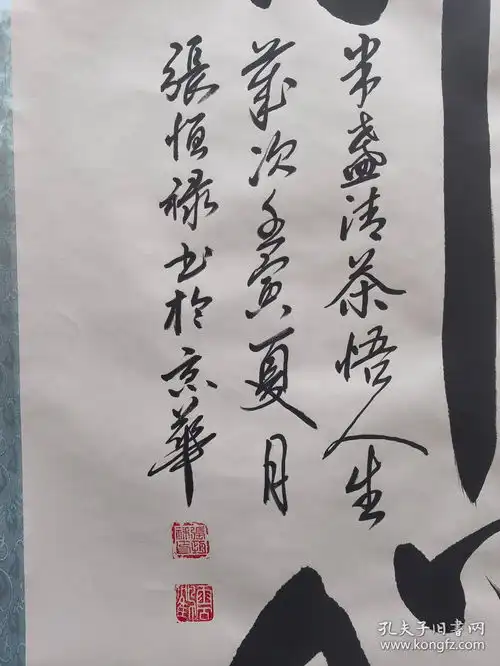 半盏清茶悟人生
岁次壬寅夏月
張恒禄书於京華
孔夫子旧书网
www.kongfz.com